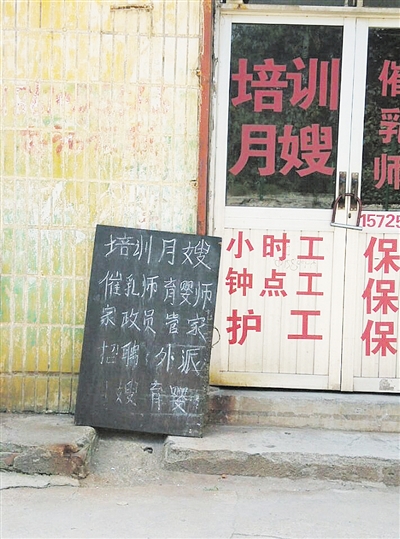 培训
月嫂
催乳师
15725
小时工
钟点工
护工
保
保
保
培训月嫂
催乳师 育婴师
家政员 管家
招聘 外派
嫂 育婴